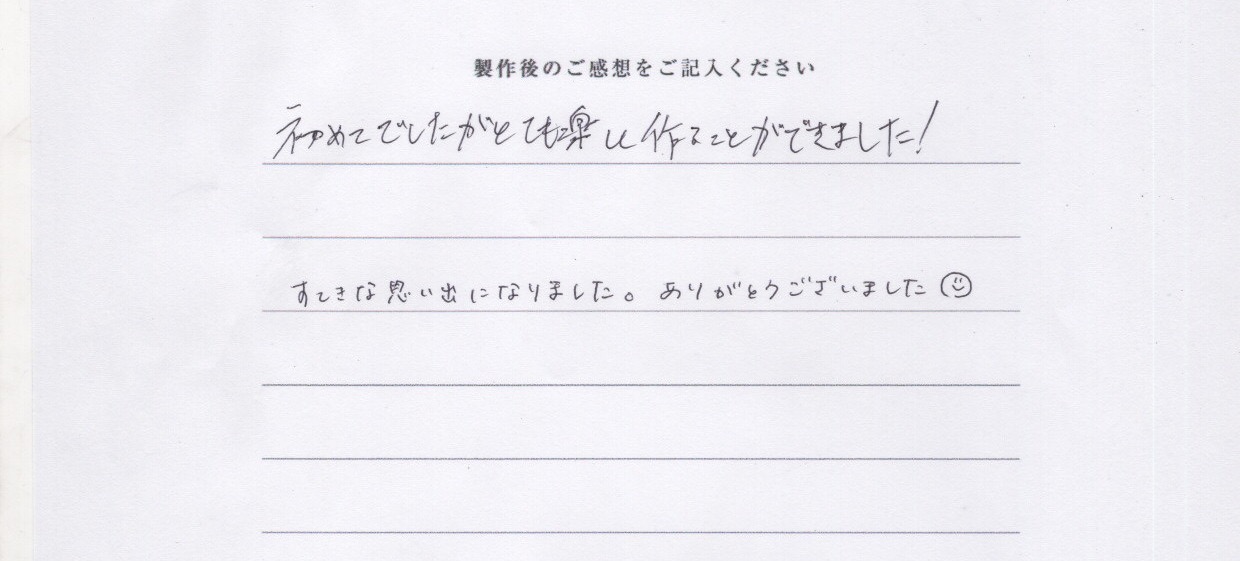 製作後のご感想をご記入ください
初めてでしたがとても楽しく作ることができました!
すてきな思い出になりました。ありがとうございました☺